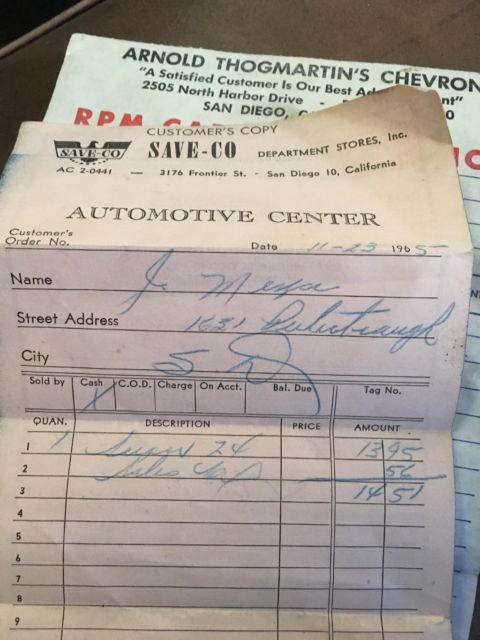 ARNOLD THOGMARTIN'S CHEVRON
"A Satisfied Customer Is Our Best
2505 North Harbor Drive -
SAN DIEGO,
RPM
CUSTOMER'S COPY
SAVE-CO SAVE-CO DEPARTMENT STORES, Inc.
AC 2-0441 — 3176 Frontier St. - San Diego 10, California
AUTOMOTIVE CENTER
Customer's
Order No. Date 11-23 1965
Name J. Meza
Street Address 1631
City S D
Sold by Cash C.O.D. Charge On Acct. Bal. Due Tag No.
QUAN. DESCRIPTION PRICE AMOUNT
1 1 Super 24 13 95
2 Sales 56
3 14 51
4
5
6
7
8
9